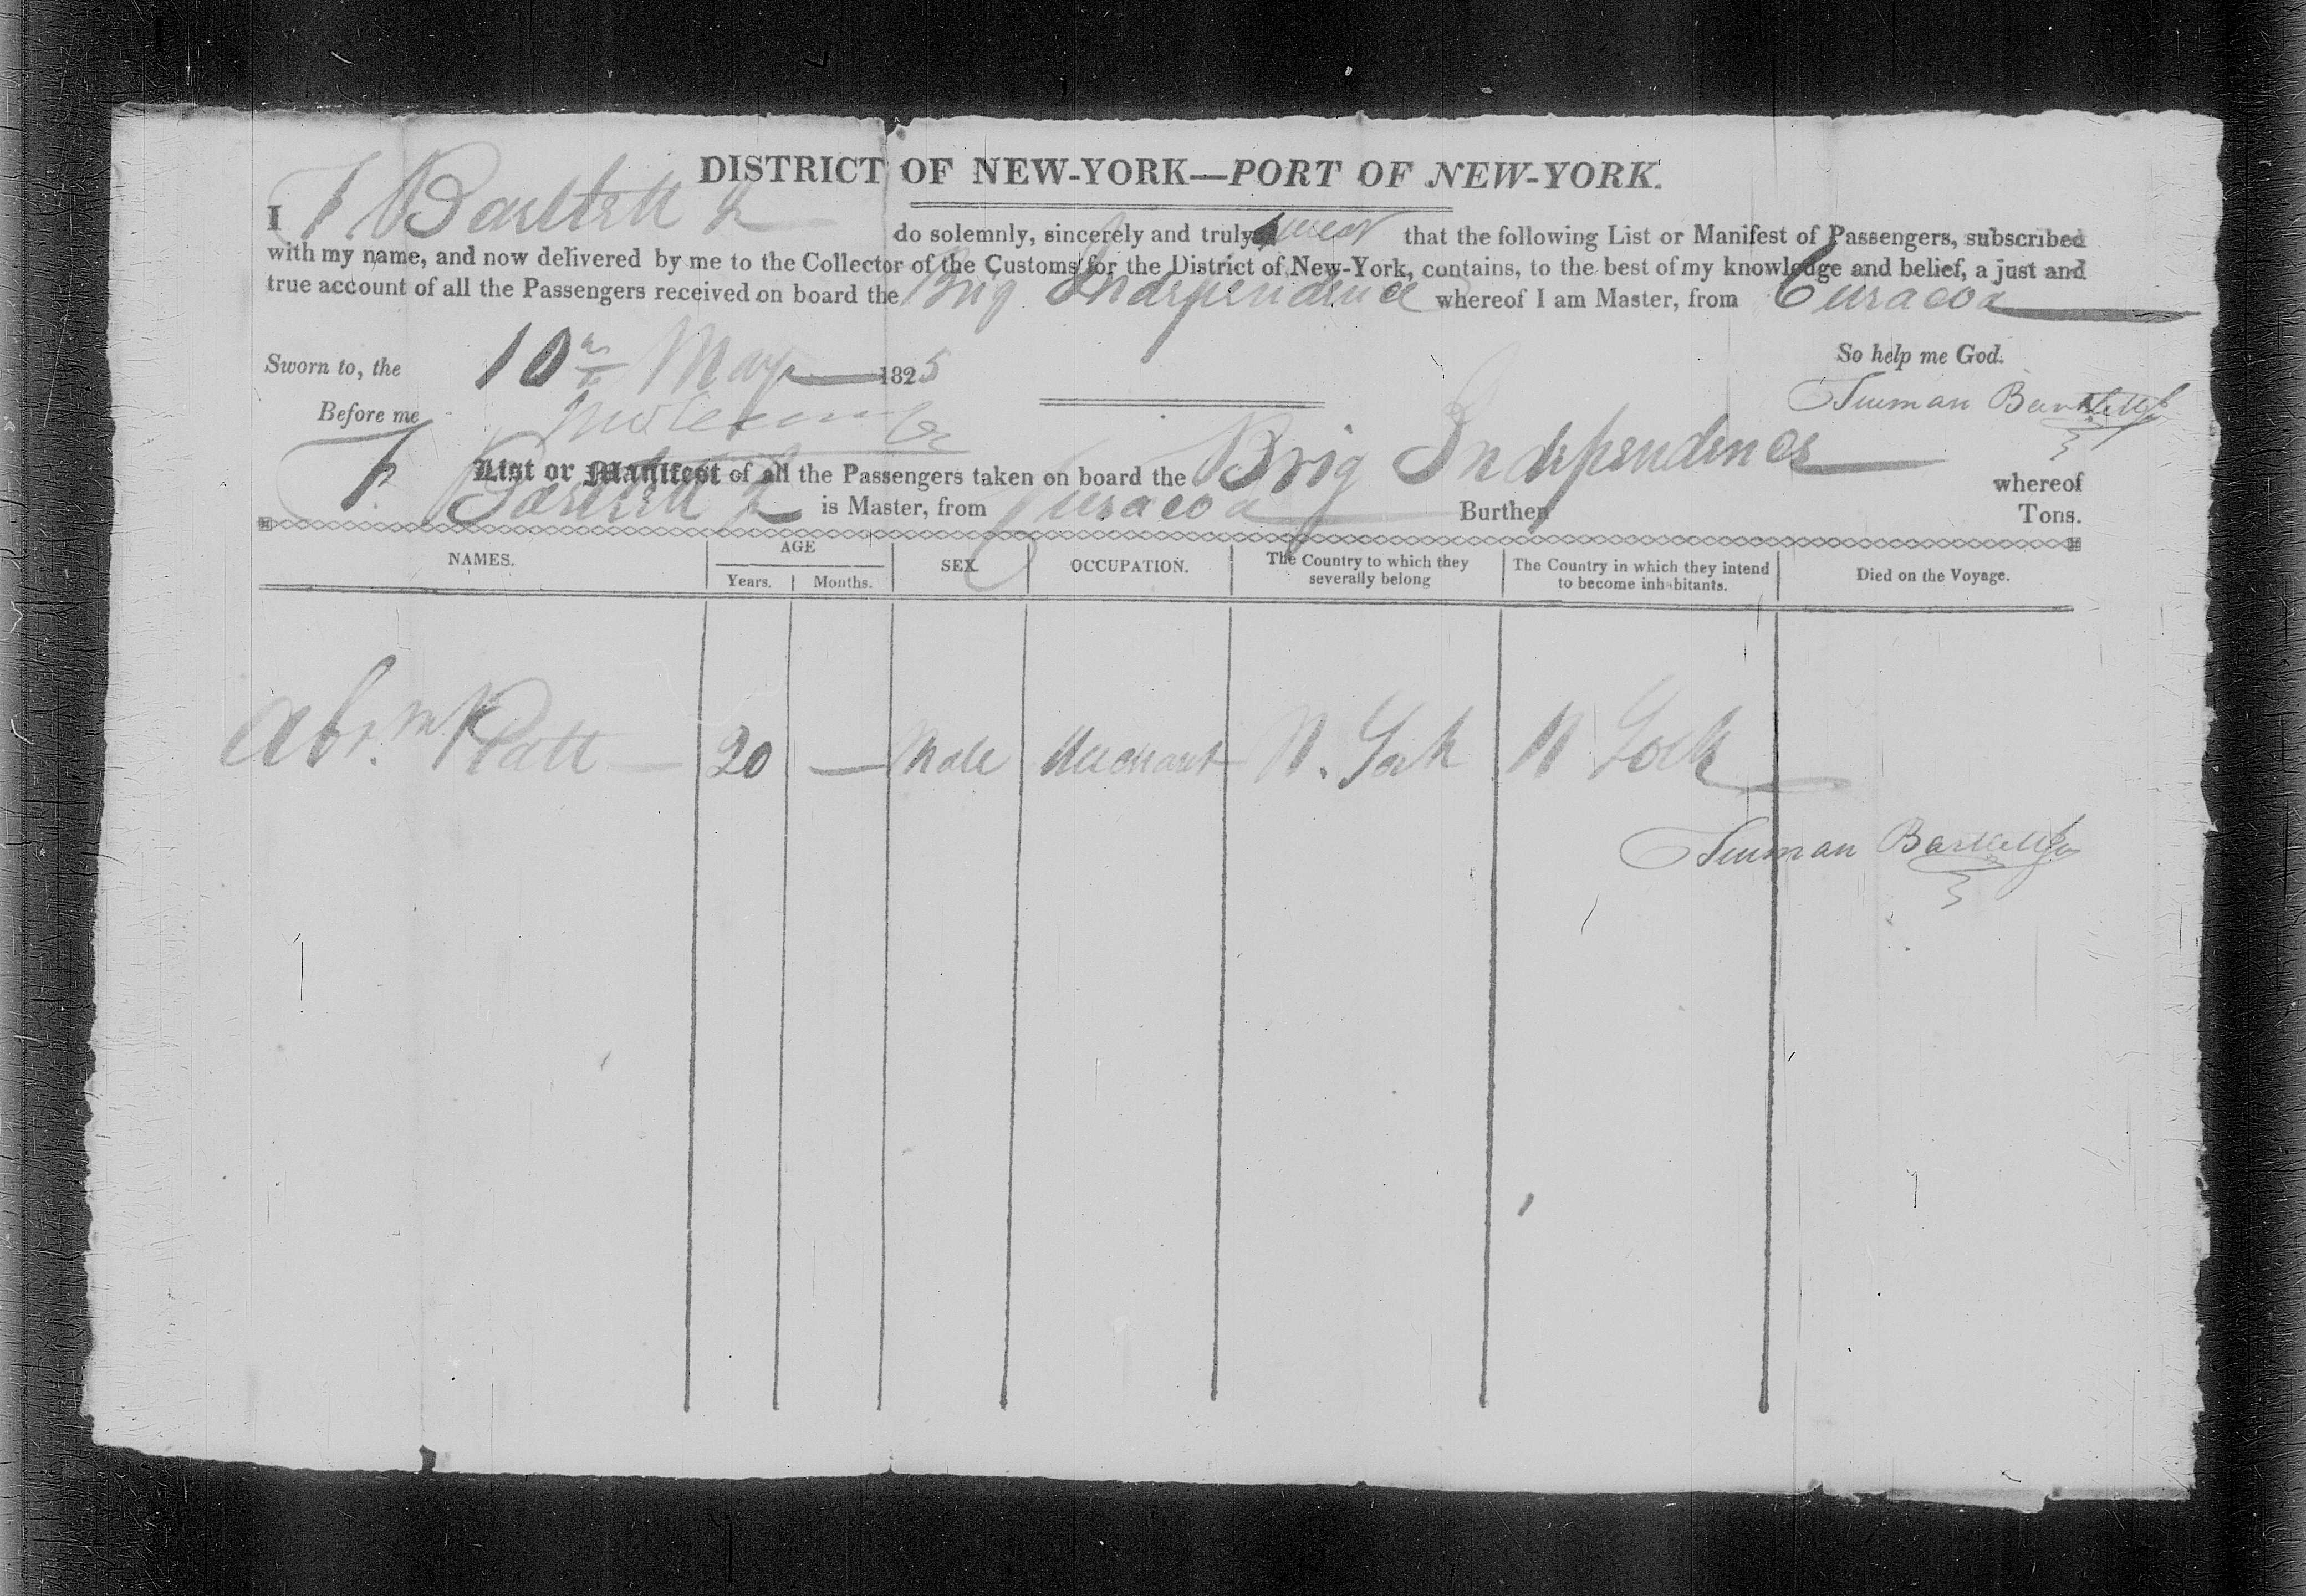 DISTRICT OF NEW-YORK—PORT OF NEW-YORK.
I T Bartlett Jr do solemnly, sincerely and truly swear that the following List or Manifest of Passengers, subscribed
with my name, and now delivered by me to the Collector of the Customs for the District of New-York, contains, to the best of my knowledge and belief, a just and
true account of all the Passengers received on board the Brig Independence whereof I am Master, from Curacoa
So help me God.
Sworn to, the 10th May 1825
Truman Bartlett Jr
Before me
List or Manifest of all the Passengers taken on board the Brig Independence whereof
T. Bartlett Jr is Master, from Curacoa Burthen Tons.
NAMES. AGE SEX. OCCUPATION. The Country to which they severally belong The Country in which they intend to become inhabitants. Died on the Voyage.
Years. Months.
Abrm Platt — 20 — Male Merchant N. York N York
Truman Bartlett Jr